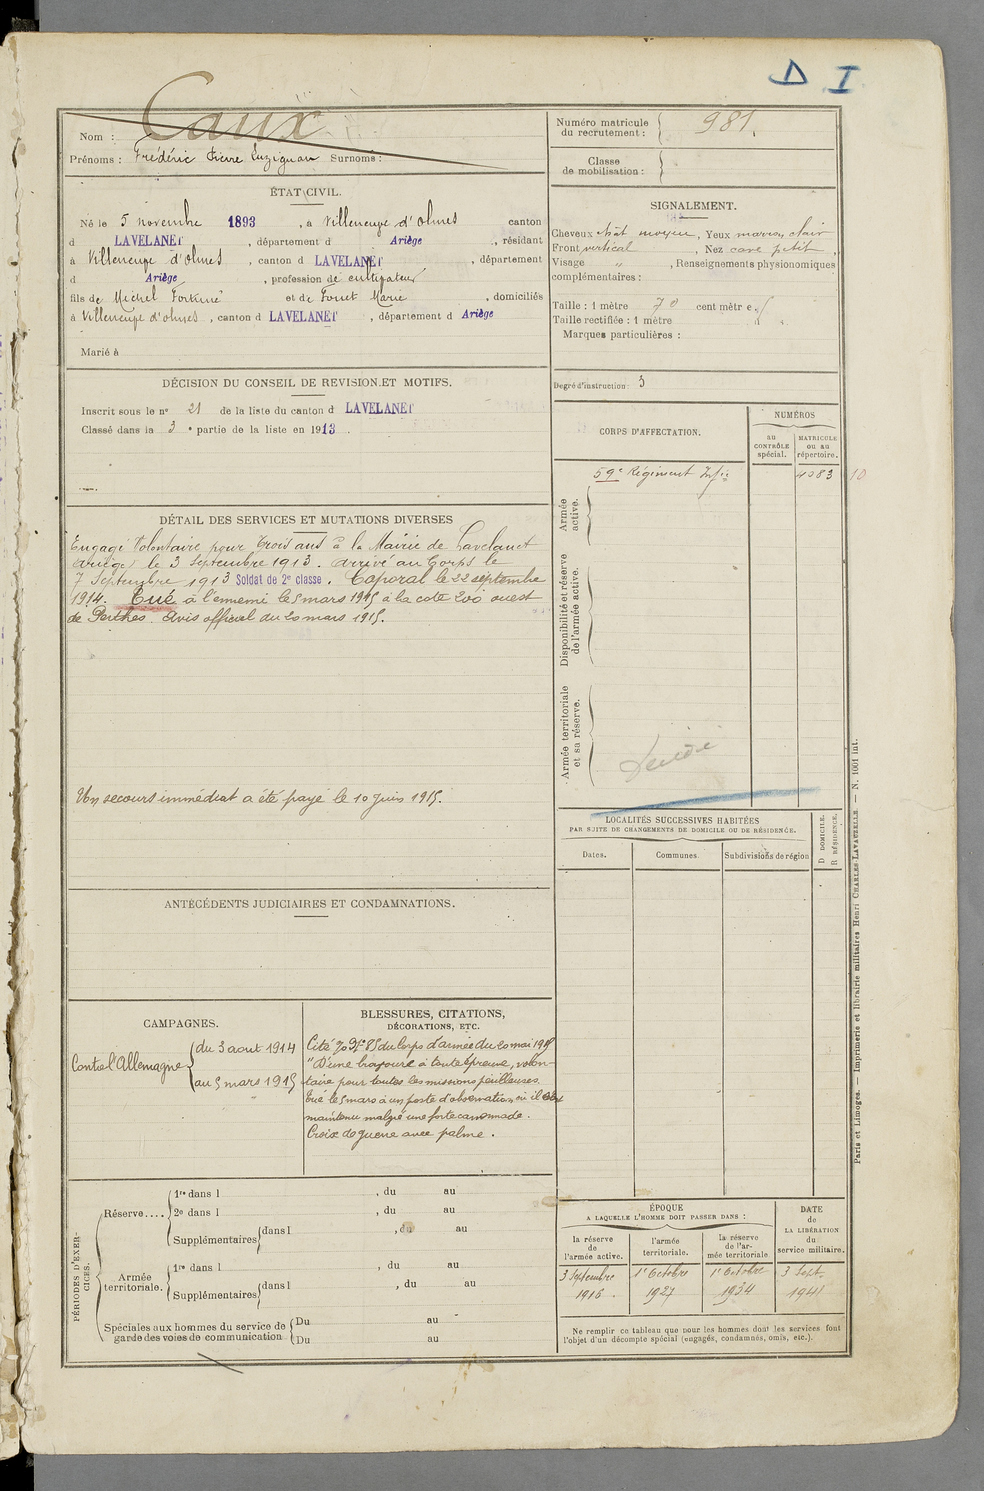 D I
Nom : Caux
Prénoms : Frédéric Pierre Luzignan Surnoms :
ÉTAT CIVIL.
Né le 5 novembre 1893, à Villeneuve d'Olmes canton
d LAVELANET, département d Ariège, résidant
à Villeneuve d'Olmes, canton d LAVELANET, département
d Ariège, profession de cultivateur
fils de Michel Fortuné et de Fonet Marie, domiciliés
à Villeneuve d'olmes, canton d LAVELANET, département d Ariège
Marié à
DÉCISION DU CONSEIL DE REVISION ET MOTIFS.
Inscrit sous le n° 21 de la liste du canton d LAVELANET
Classé dans la 3e partie de la liste en 1913.
DÉTAIL DES SERVICES ET MUTATIONS DIVERSES
Engagé Volontaire pour Trois ans à la Mairie de Lavelanet
(Ariège) le 3 Septembre 1913. Arrivé au Corps le
7 Septembre 1913 Soldat de 2e classe. Caporal le 22 septembre
1914. Tué à l'ennemi le 5 mars 1915 à la cote 200 ouest
de Perthes. Avis officiel du 20 mars 1915.
Un secours immédiat a été payé le 10 Juin 1915.
ANTÉCÉDENTS JUDICIAIRES ET CONDAMNATIONS.
CAMPAGNES.
Contre l'Allemagne
du 3 août 1914
au 5 mars 1915
BLESSURES, CITATIONS,
DÉCORATIONS, ETC.
Cité du Corps d'armée du 20 mai 1915
"D'une bravoure à toute épreuve, volon-
taire pour toutes les missions périlleuses.
Tué le 5 mars à un poste d'observation où il
maintenu malgré une forte canonnade.
Croix de guerre avec palme.
PÉRIODES D'EXERCICES.
Réserve....
1re dans l , du au
2e dans l , du au
Supplémentaires dans l , du au
Armée
territoriale.
1re dans l , du au
Supplémentaires dans l , du au
Spéciales aux hommes du service de
garde des voies de communication
Du au
Du au
Numéro matricule
du recrutement : 981.
Classe
de mobilisation :
SIGNALEMENT.
Cheveux chât moyen, Yeux marron clair
Front vertical, Nez cave petit,
Visage ", Renseignements physionomiques
complémentaires :
Taille : 1 mètre 70 centimètres.
Taille rectifiée : 1 mètre
Marques particulières :
Degré d'instruction : 3
CORPS D'AFFECTATION.
NUMÉROS
au
CONTRÔLE
spécial.
MATRICULE
ou au
répertoire.
59e Régiment Infie
4083 10
Armée
active.
Disponibilité et réserve
de l'armée active.
Armée territoriale
et sa réserve.
LOCALITÉS SUCCESSIVES HABITÉES
PAR SUITE DE CHANGEMENTS DE DOMICILE OU DE RÉSIDENCE.
Dates.
Communes.
Subdivisions de région
D DOMICILE.
R RÉSIDENCE.
ÉPOQUE
A LAQUELLE L'HOMME DOIT PASSER DANS :
la réserve
de
l'armée active.
l'armée
territoriale.
la réserve
de l'ar-
mée territoriale
DATE
de
LA LIBÉRATION
du
service militaire.
3 Septembre
1916.
1er Octobre
1927
1er Octobre
1934
3 Sept.
1941
Ne remplir ce tableau que pour les hommes dont les services font
l'objet d'un décompte spécial (engagés, condamnés, omis, etc.).
Paris et Limoges. — Imprimerie et librairie militaires Henri CHARLES-LAVAUZELLE. — N. 1001 int.